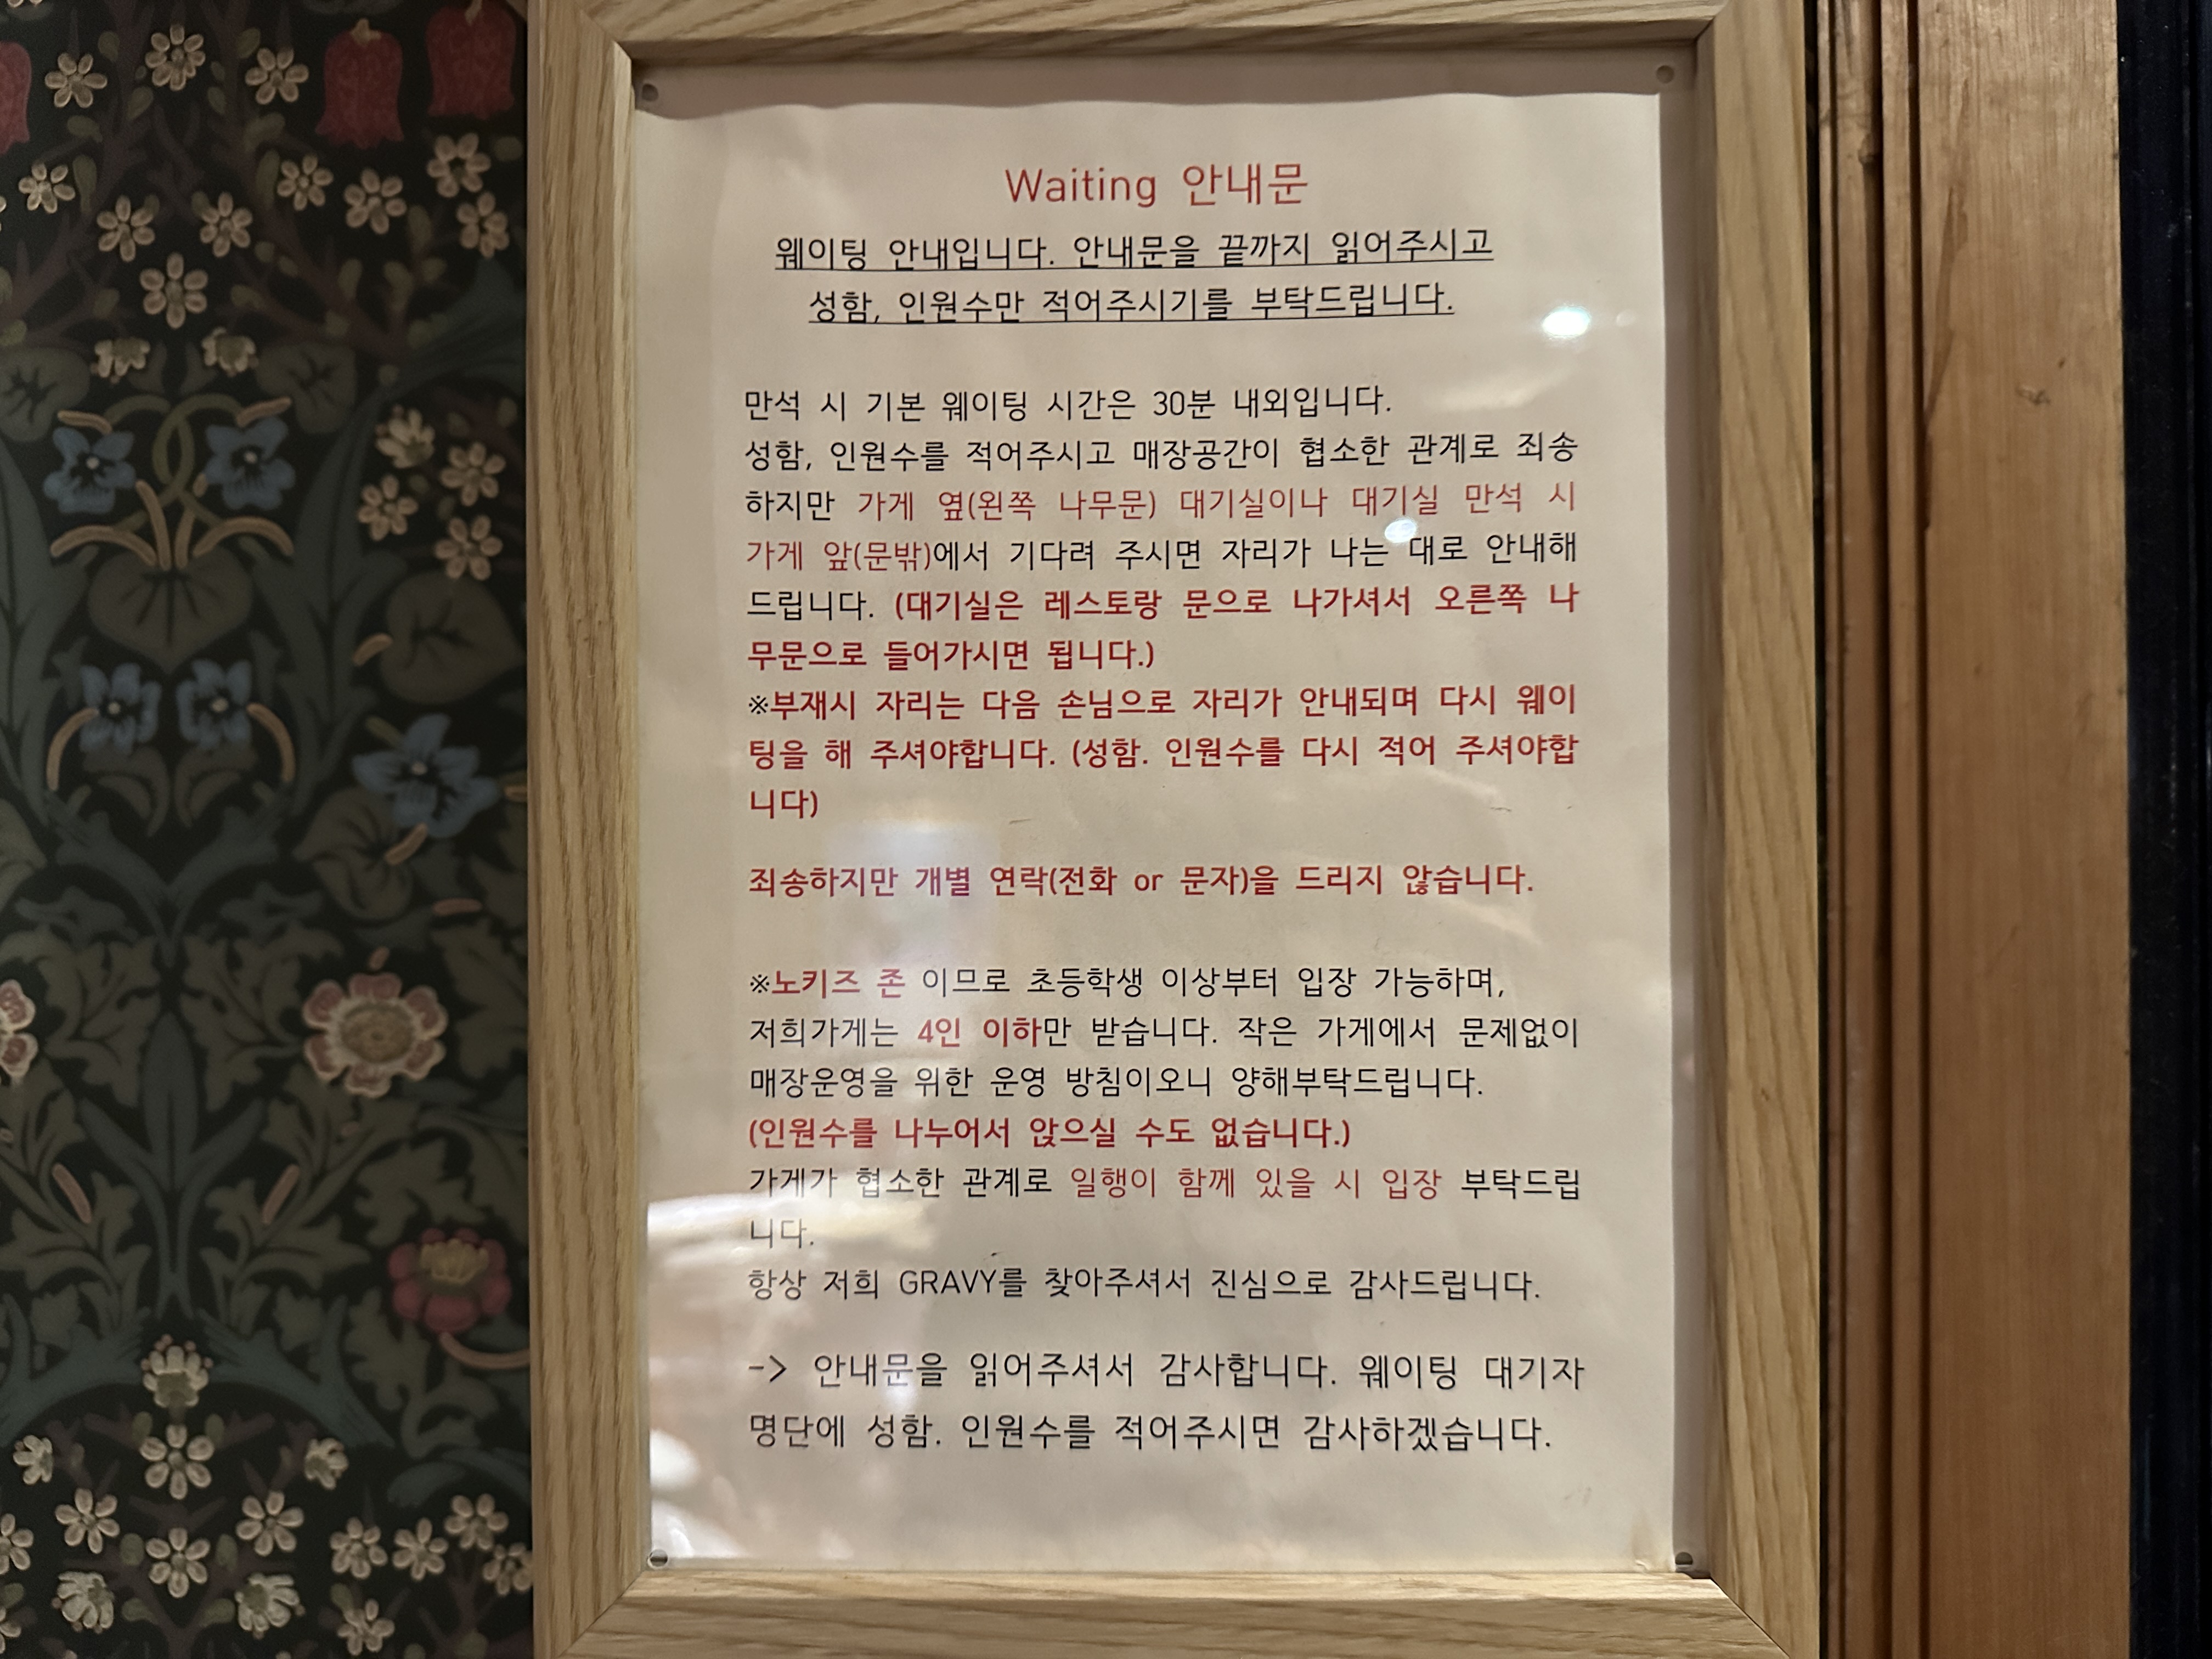 Waiting 안내문
웨이팅 안내입니다. 안내문을 끝까지 읽어주시고
성함, 인원수만 적어주시기를 부탁드립니다.
만석 시 기본 웨이팅 시간은 30분 내외입니다.
성함, 인원수를 적어주시고 매장공간이 협소한 관계로 죄송
하지만 가게 옆(왼쪽 나무문) 대기실이나 대기실 만석 시
가게 앞(문밖)에서 기다려 주시면 자리가 나는 대로 안내해
드립니다. (대기실은 레스토랑 문으로 나가셔서 오른쪽 나
무문으로 들어가시면 됩니다.)
※부재시 자리는 다음 손님으로 자리가 안내되며 다시 웨이
팅을 해 주셔야합니다. (성함. 인원수를 다시 적어 주셔야합
니다)
죄송하지만 개별 연락(전화 or 문자)을 드리지 않습니다.
※노키즈 존 이므로 초등학생 이상부터 입장 가능하며,
저희가게는 4인 이하만 받습니다. 작은 가게에서 문제없이
매장운영을 위한 운영 방침이오니 양해부탁드립니다.
(인원수를 나누어서 앉으실 수도 없습니다.)
가게가 협소한 관계로 일행이 함께 있을 시 입장 부탁드립
니다.
항상 저희 GRAVY를 찾아주셔서 진심으로 감사드립니다.
-> 안내문을 읽어주셔서 감사합니다. 웨이팅 대기자
명단에 성함. 인원수를 적어주시면 감사하겠습니다.